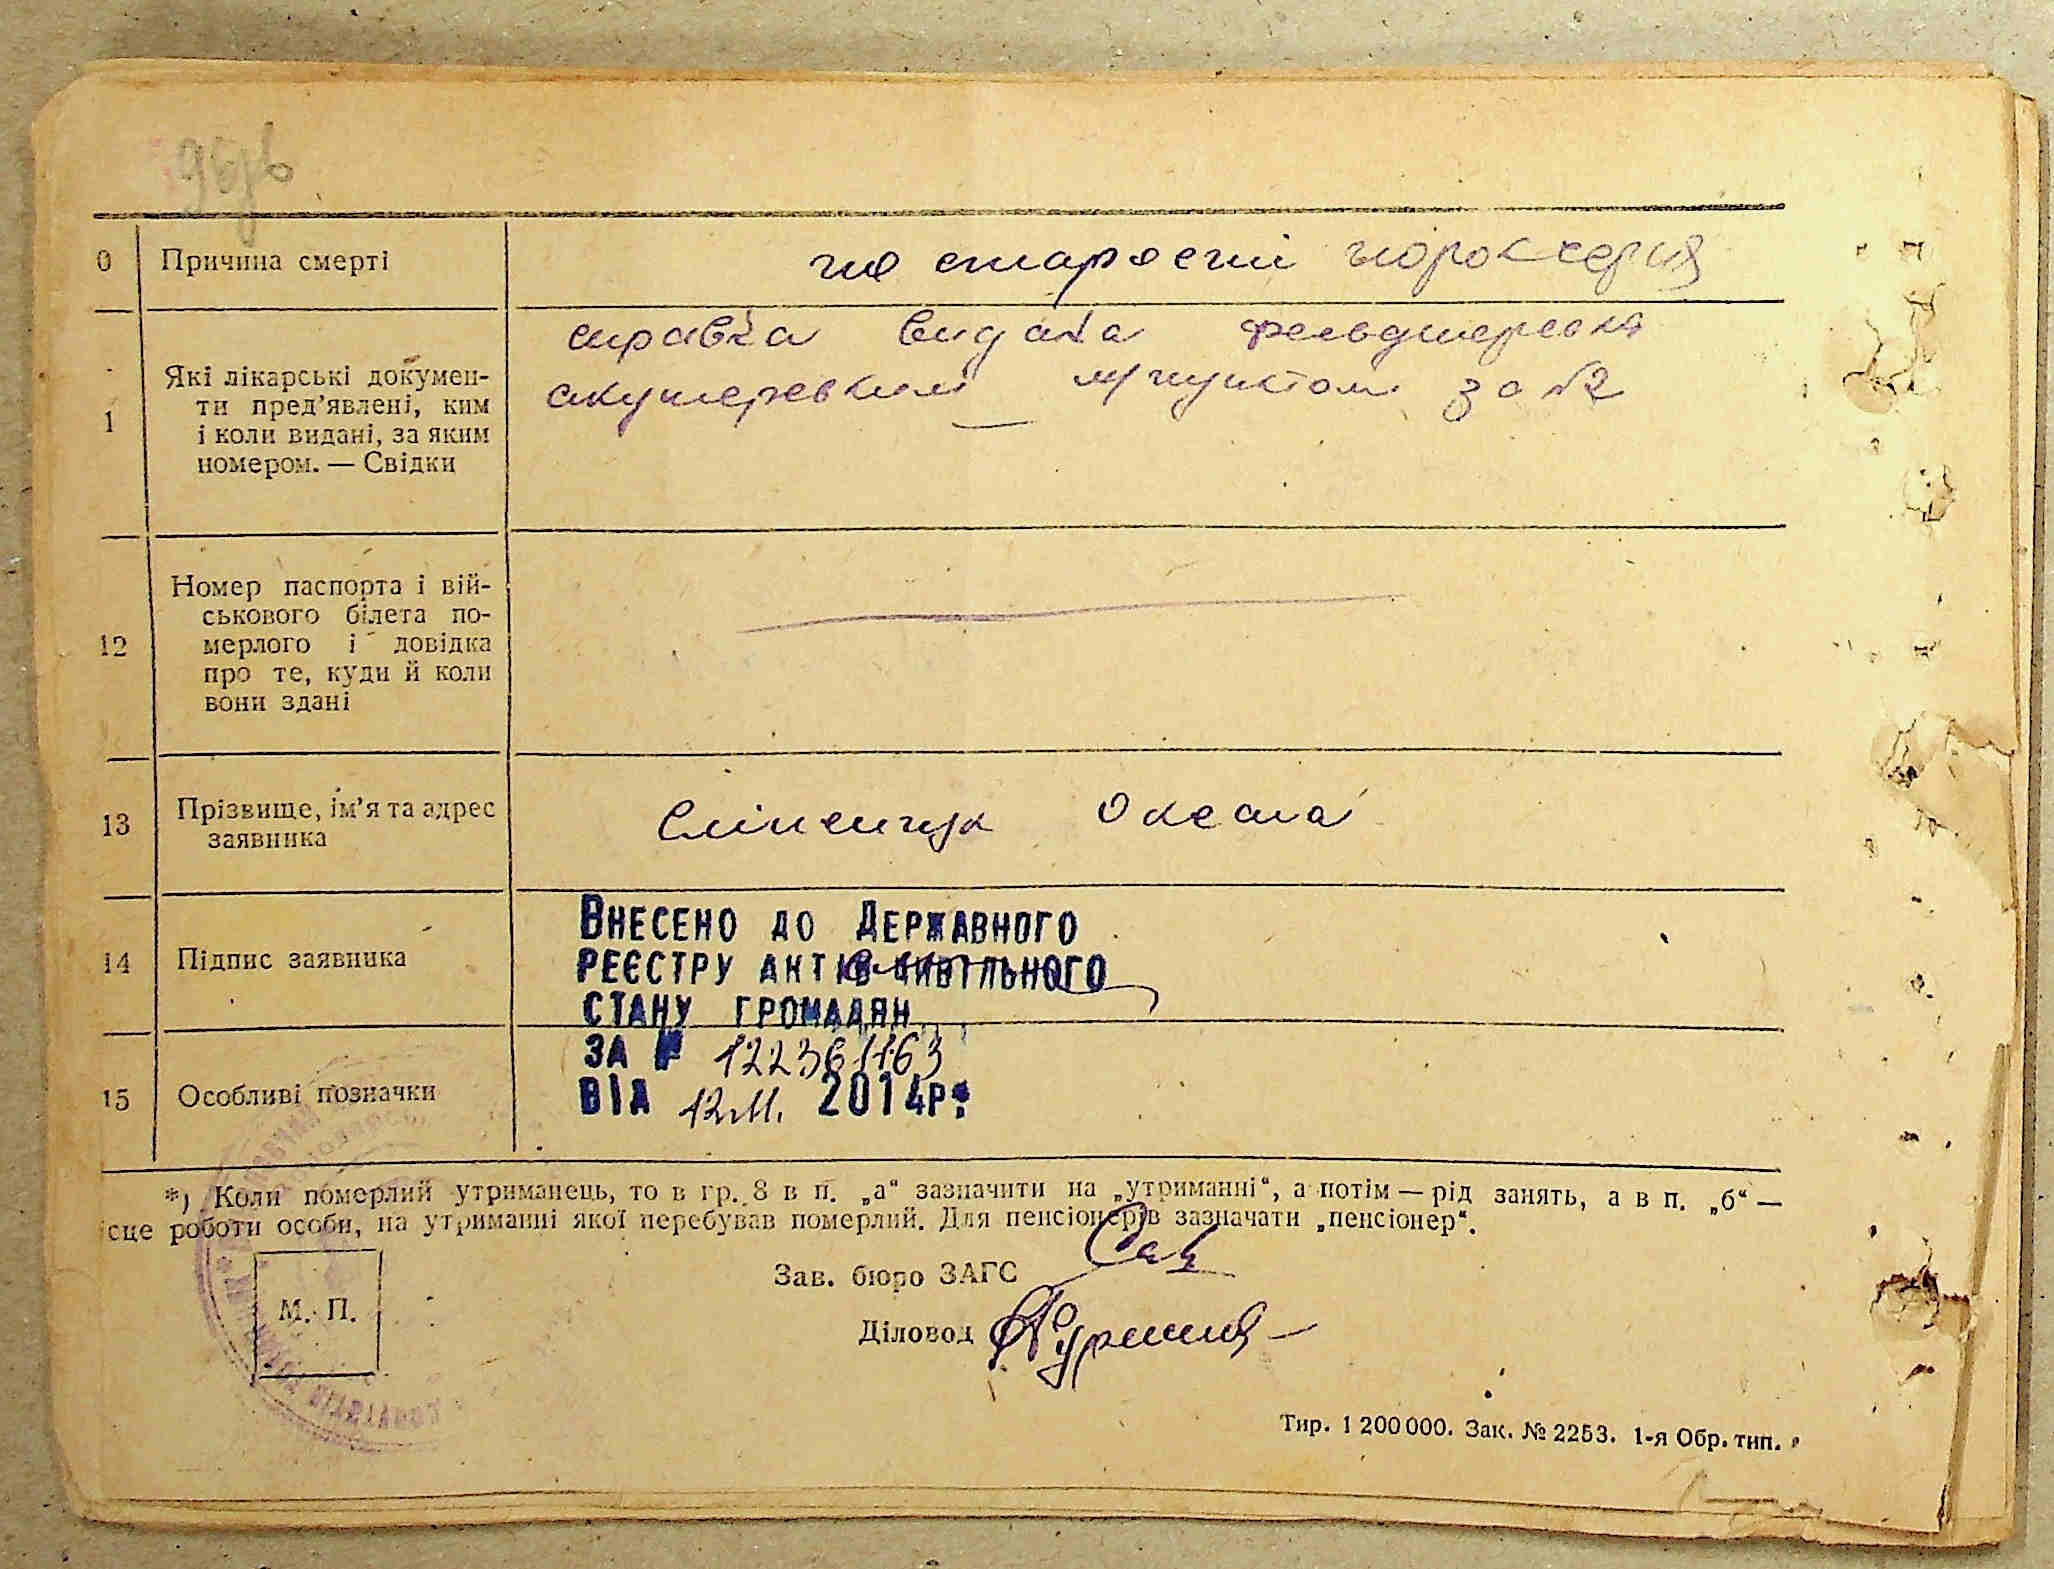 0 Причина смерті по старости порок серця
справка видана фельдшерско
1 Які лікарські докумен-
ти пред’явлені, ким
і коли видані, за яким
номером. — Свідки
акушерським пунктом за №2
12 Номер паспорта і вій-
ськового білета по-
мерлого і довідка
про те, куди й коли
вони здані
13 Прізвище, ім’я та адрес
заявника
Оксана
14 Підпис заявника
Внесено до Державного
реєстру актів цивільного
стану громадян
за № 122361163
15 Особливі позначки
від 12.11. 2014р.
*) Коли померлий утриманець, то в гр. 8 в п. „а“ зазначити на „утриманні“, а потім — рід занять, а в п. „б“ —
ісце роботи особи, на утриманні якої перебував померлий. Для пенсіонерів зазначати „пенсіонер“.
Зав. бюро ЗАГС
М. П.
Діловод
Тир. 1 200 000. Зак. № 2253. 1-я Обр. тип.